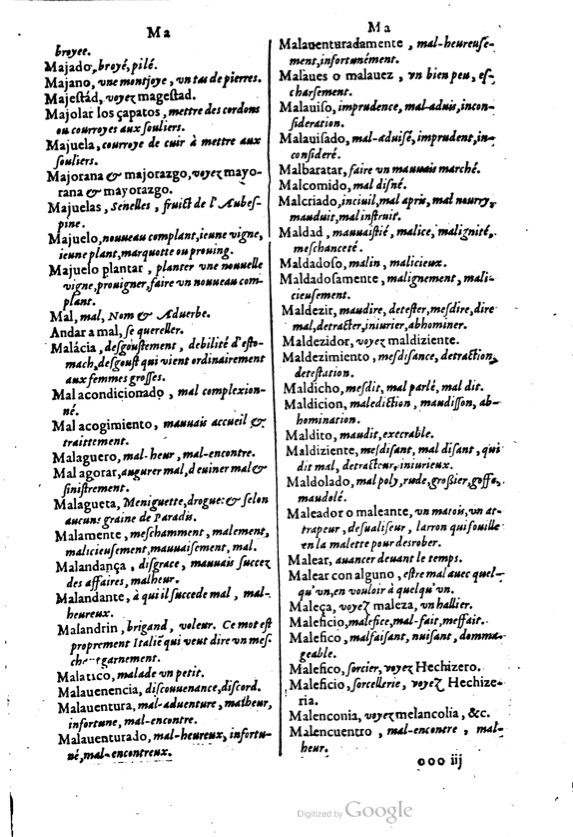 Ma
broyee.
Majado, broyé, pilé.
Majano, vne montjoye, vn tas de pierres.
Majestád, voyez magestad.
Majolar los çapatos, mettre des cordons
ou courroyes aux souliers.
Majuela, courroye de cuir à mettre aux
souliers.
Majorana & majorazgo, voyez mayo-
rana & mayorazgo.
Majuelas, Senelles, fruict de l'Aubes-
pine.
Majuelo, nouueau complant, ieune vigne,
ieune plant, marquotte ou prouing.
Majuelo plantar, planter vne nouuelle
vigne, prouigner, faire vn nouueau com-
plant.
Mal, mal, Nom & Aduerbe.
Andar a mal, se quereller.
Malácia, desgoustement, debilité d'esto-
mach, desgoust qui vient ordinairement
aux femmes grosses.
Mal acondicionado, mal complexion-
né.
Mal acogimiento, mauuais accueil &
traittement.
Malaguero, mal-heur, mal-encontre.
Mal agorar, augurer mal, deuiner mal &
sinistrement.
Malagueta, Meniguette, drogue: & selon
aucuns graine de Paradis.
Malamente, meschamment, malement,
malicieusement, mauuaisement, mal.
Malandança, disgrace, mauuais succez
des affaires, malheur.
Malandante, à qui il succede mal, mal-
heureux.
Malandrin, brigand, voleur. Ce mot est
proprement Italié qui veut dire vn mes-
chant garnement.
Malatico, malade vn petit.
Malauenencia, discouuenance, discord.
Malauentura, mal-aduenture, malheur,
infortune, mal-encontre.
Malauenturado, mal-heureux, infortu-
né, mal-encontreux.
Ma
Malauenturadamente, mal-heureuse-
ment, infortunément.
Malaues o malauez, vn bien peu, es-
charsement.
Malauiso, imprudence, mal-aduis, incon-
sideration.
Malauisado, mal-aduisé, imprudent, in-
consideré.
Malbaratar, faire vn mauuais marché.
Malcomido, mal disné.
Malcriado, inciuil, mal apris, mal nourry,
mauduit, mal instruit.
Maldad, mauuaistié, malice, malignité,
meschanceté.
Maldadoso, malin, malicieux.
Maldadosamente, malignement, mali-
cieusement.
Maldezir, maudire, detester, mesdire, dire
mal, detracter, iniurier, abhominer.
Maldezidor, voyez maldiziente.
Maldezimiento, mesdisance, detraction,
detestation.
Maldicho, mesdit, mal parlé, mal dit.
Maldicion, malediction, maudisson, ab-
homination.
Maldito, maudit, execrable.
Maldiziente, mesdisant, mal disant, qui
dit mal, detracteur, iniurieux.
Maldolado, mal poly, rude, grossier, goffe,
maudolé.
Maleador o maleante, vn matois, vn at-
trapeur, desualiseur, larron qui fouille
en la malette pour desrober.
Malear, auancer deuant le temps.
Malear con alguno, estre mal auec quel-
qu'vn, en vouloir à quelqu'vn.
Maleça, voyez maleza, vn hallier.
Maleficio, malefice, mal-fait, meffait.
Malefico, malfaisant, nuisant, domma-
geable.
Malefico, sorcier, voyez Hechizero.
Maleficio, sorcellerie, voyez Hechize-
ria.
Malenconia, voyez melancolia, &c.
Malencuentro, mal-encontre, mal-
heur.
ooo iij
Digitized by Google